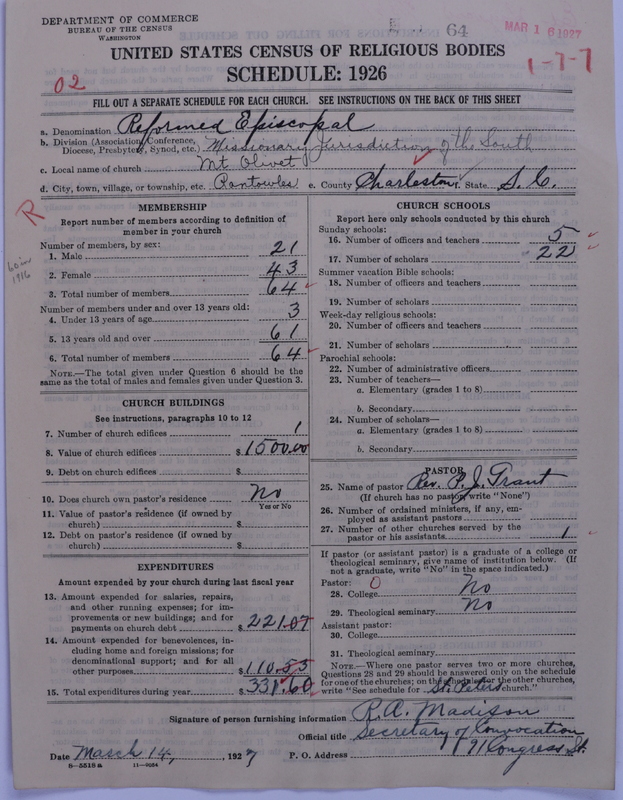 DEPARTMENT OF COMMERCE
BUREAU OF THE CENSUS
WASHINGTON
64
MAR 16 1927
1-7-7
UNITED STATES CENSUS OF RELIGIOUS BODIES
SCHEDULE: 1926
02
FILL OUT A SEPARATE SCHEDULE FOR EACH CHURCH. SEE INSTRUCTIONS ON THE BACK OF THIS SHEET
a. Denomination Reformed Episcopal
b. Division (Association, Conference, Diocese, Presbytery, Synod, etc.) Missionary Jurisdiction of the South
c. Local name of church Mt Olivet
d. City, town, village, or township, etc. Rantowles e. County Charleston f. State S. C.
R
60 in 1916
MEMBERSHIP
Report number of members according to definition of member in your church
Number of members, by sex:
1. Male 21
2. Female 43
3. Total number of members 64
Number of members under and over 13 years old:
4. Under 13 years of age 3
5. 13 years old and over 61
6. Total number of members 64
NOTE.—The total given under Question 6 should be the same as the total of males and females given under Question 3.
CHURCH BUILDINGS
See instructions, paragraphs 10 to 12
7. Number of church edifices 1
8. Value of church edifices $1500.00
9. Debt on church edifices $
10. Does church own pastor's residence No
Yes or No
11. Value of pastor's residence (if owned by church) $
12. Debt on pastor's residence (if owned by church) $
EXPENDITURES
Amount expended by your church during last fiscal year
13. Amount expended for salaries, repairs, and other running expenses; for improvements or new buildings; and for payments on church debt $221.07
14. Amount expended for benevolences, including home and foreign missions; for denominational support; and for all other purposes $110.53
15. Total expenditures during year $331.60
CHURCH SCHOOLS
Report here only schools conducted by this church
Sunday schools:
16. Number of officers and teachers 5
17. Number of scholars 22
Summer vacation Bible schools:
18. Number of officers and teachers
19. Number of scholars
Week-day religious schools:
20. Number of officers and teachers
21. Number of scholars
Parochial schools:
22. Number of administrative officers
23. Number of teachers—
a. Elementary (grades 1 to 8)
b. Secondary
24. Number of scholars—
a. Elementary (grades 1 to 8)
b. Secondary
PASTOR
25. Name of pastor Rev. P. J. Grant
(If church has no pastor, write "None")
26. Number of ordained ministers, if any, employed as assistant pastors
27. Number of other churches served by the pastor or his assistants 1
If pastor (or assistant pastor) is a graduate of a college or theological seminary, give name of institution below. (If not a graduate, write "No" in the space indicated.)
Pastor: 0
28. College No
29. Theological seminary No
Assistant pastor:
30. College
31. Theological seminary
NOTE.—Where one pastor serves two or more churches, Questions 28 and 29 should be answered only on the schedule for one of the churches; on the schedules for the other churches, write "See schedule for St. Peters church."
Signature of person furnishing information R. A. Madison
Official title Secretary of Convocation
Date March 14, 1927 P. O. Address 91 Congress St.
8—5518 a 11—9034